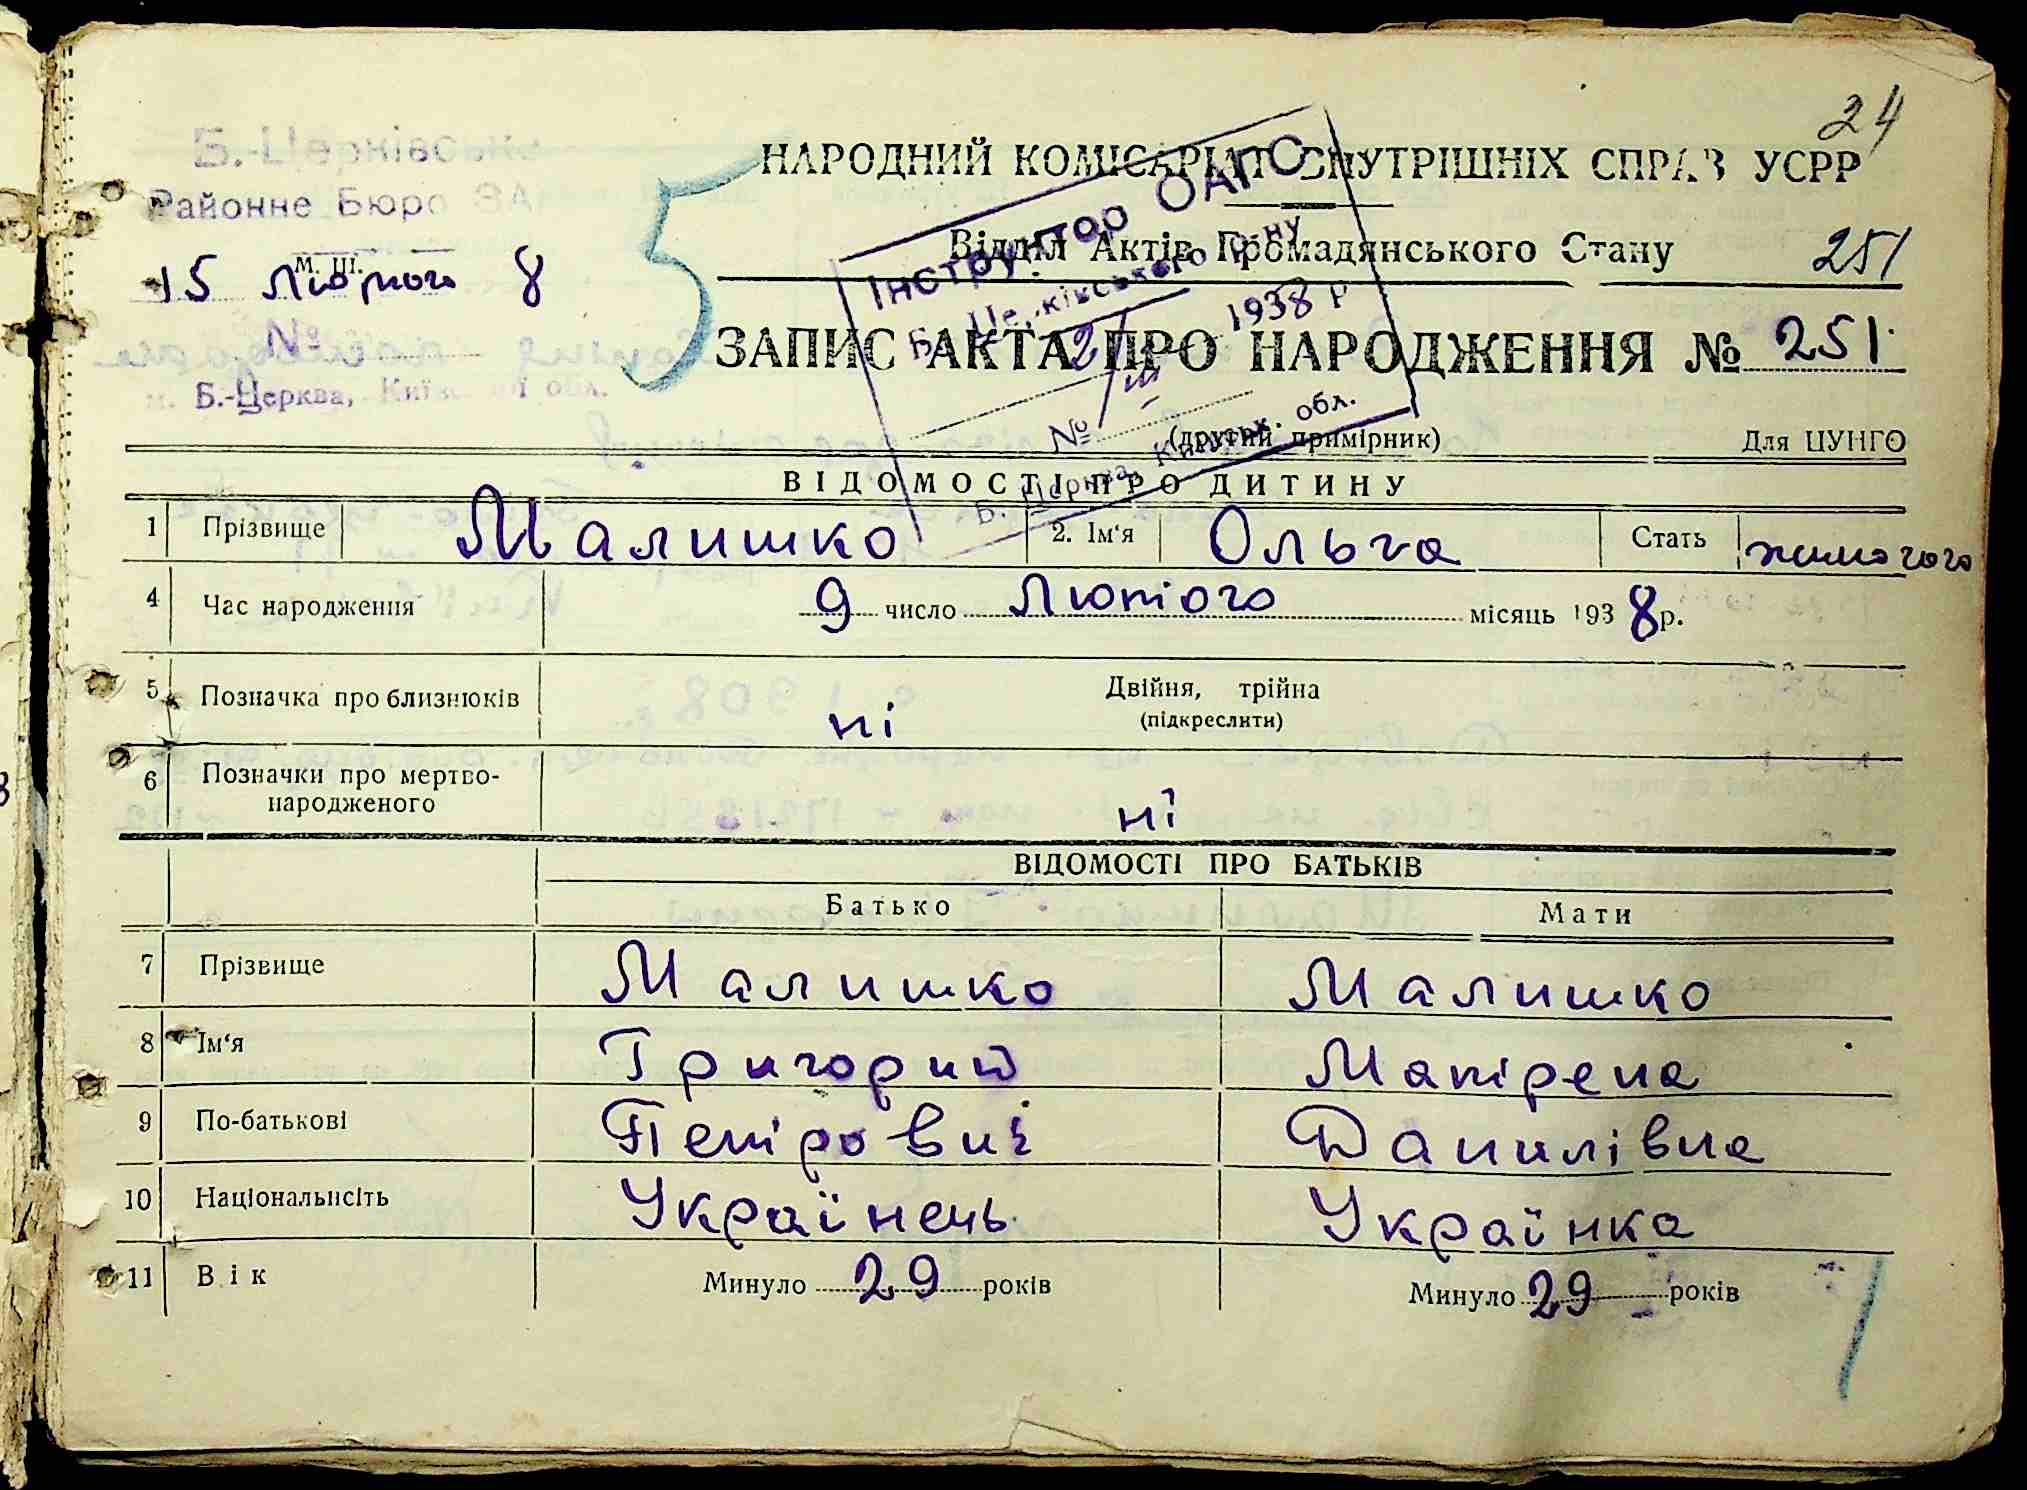 24
Б.-Церківське
Районне Бюро ЗА
м. ш.
15 Лютого 8
№
м. Б.-Церква, Київської обл.
5
НАРОДНИЙ КОМІСАРІАТ ВНУТРІШНІХ СПРАВ УСРР
Відділ Актів Громадянського Стану
251
ЗАПИС АКТА ПРО НАРОДЖЕННЯ № 251
(другий примірник)
Для ЦУНГО
Інструктор ОАГС
Б. Церківського р-ну
2/III 1938 р
№
Б. Церква, Київськ. обл.
ВІДОМОСТІ ПРО ДИТИНУ
1 Прізвище Малишко 2. Ім'я Ольга Стать жіночого
4 Час народження 9 число Лютого місяць 1938р.
5 Позначка про близнюків ні Двійня, трійна
(підкреслити)
6 Позначки про мертво-
народженого ні
ВІДОМОСТІ ПРО БАТЬКІВ
Батько Мати
7 Прізвище Малишко Малишко
8 Ім'я Григорий Мотрена
9 По-батькові Петрович Данилівна
10 Національність Українець Українка
11 Вік Минуло 29 років Минуло 29 років